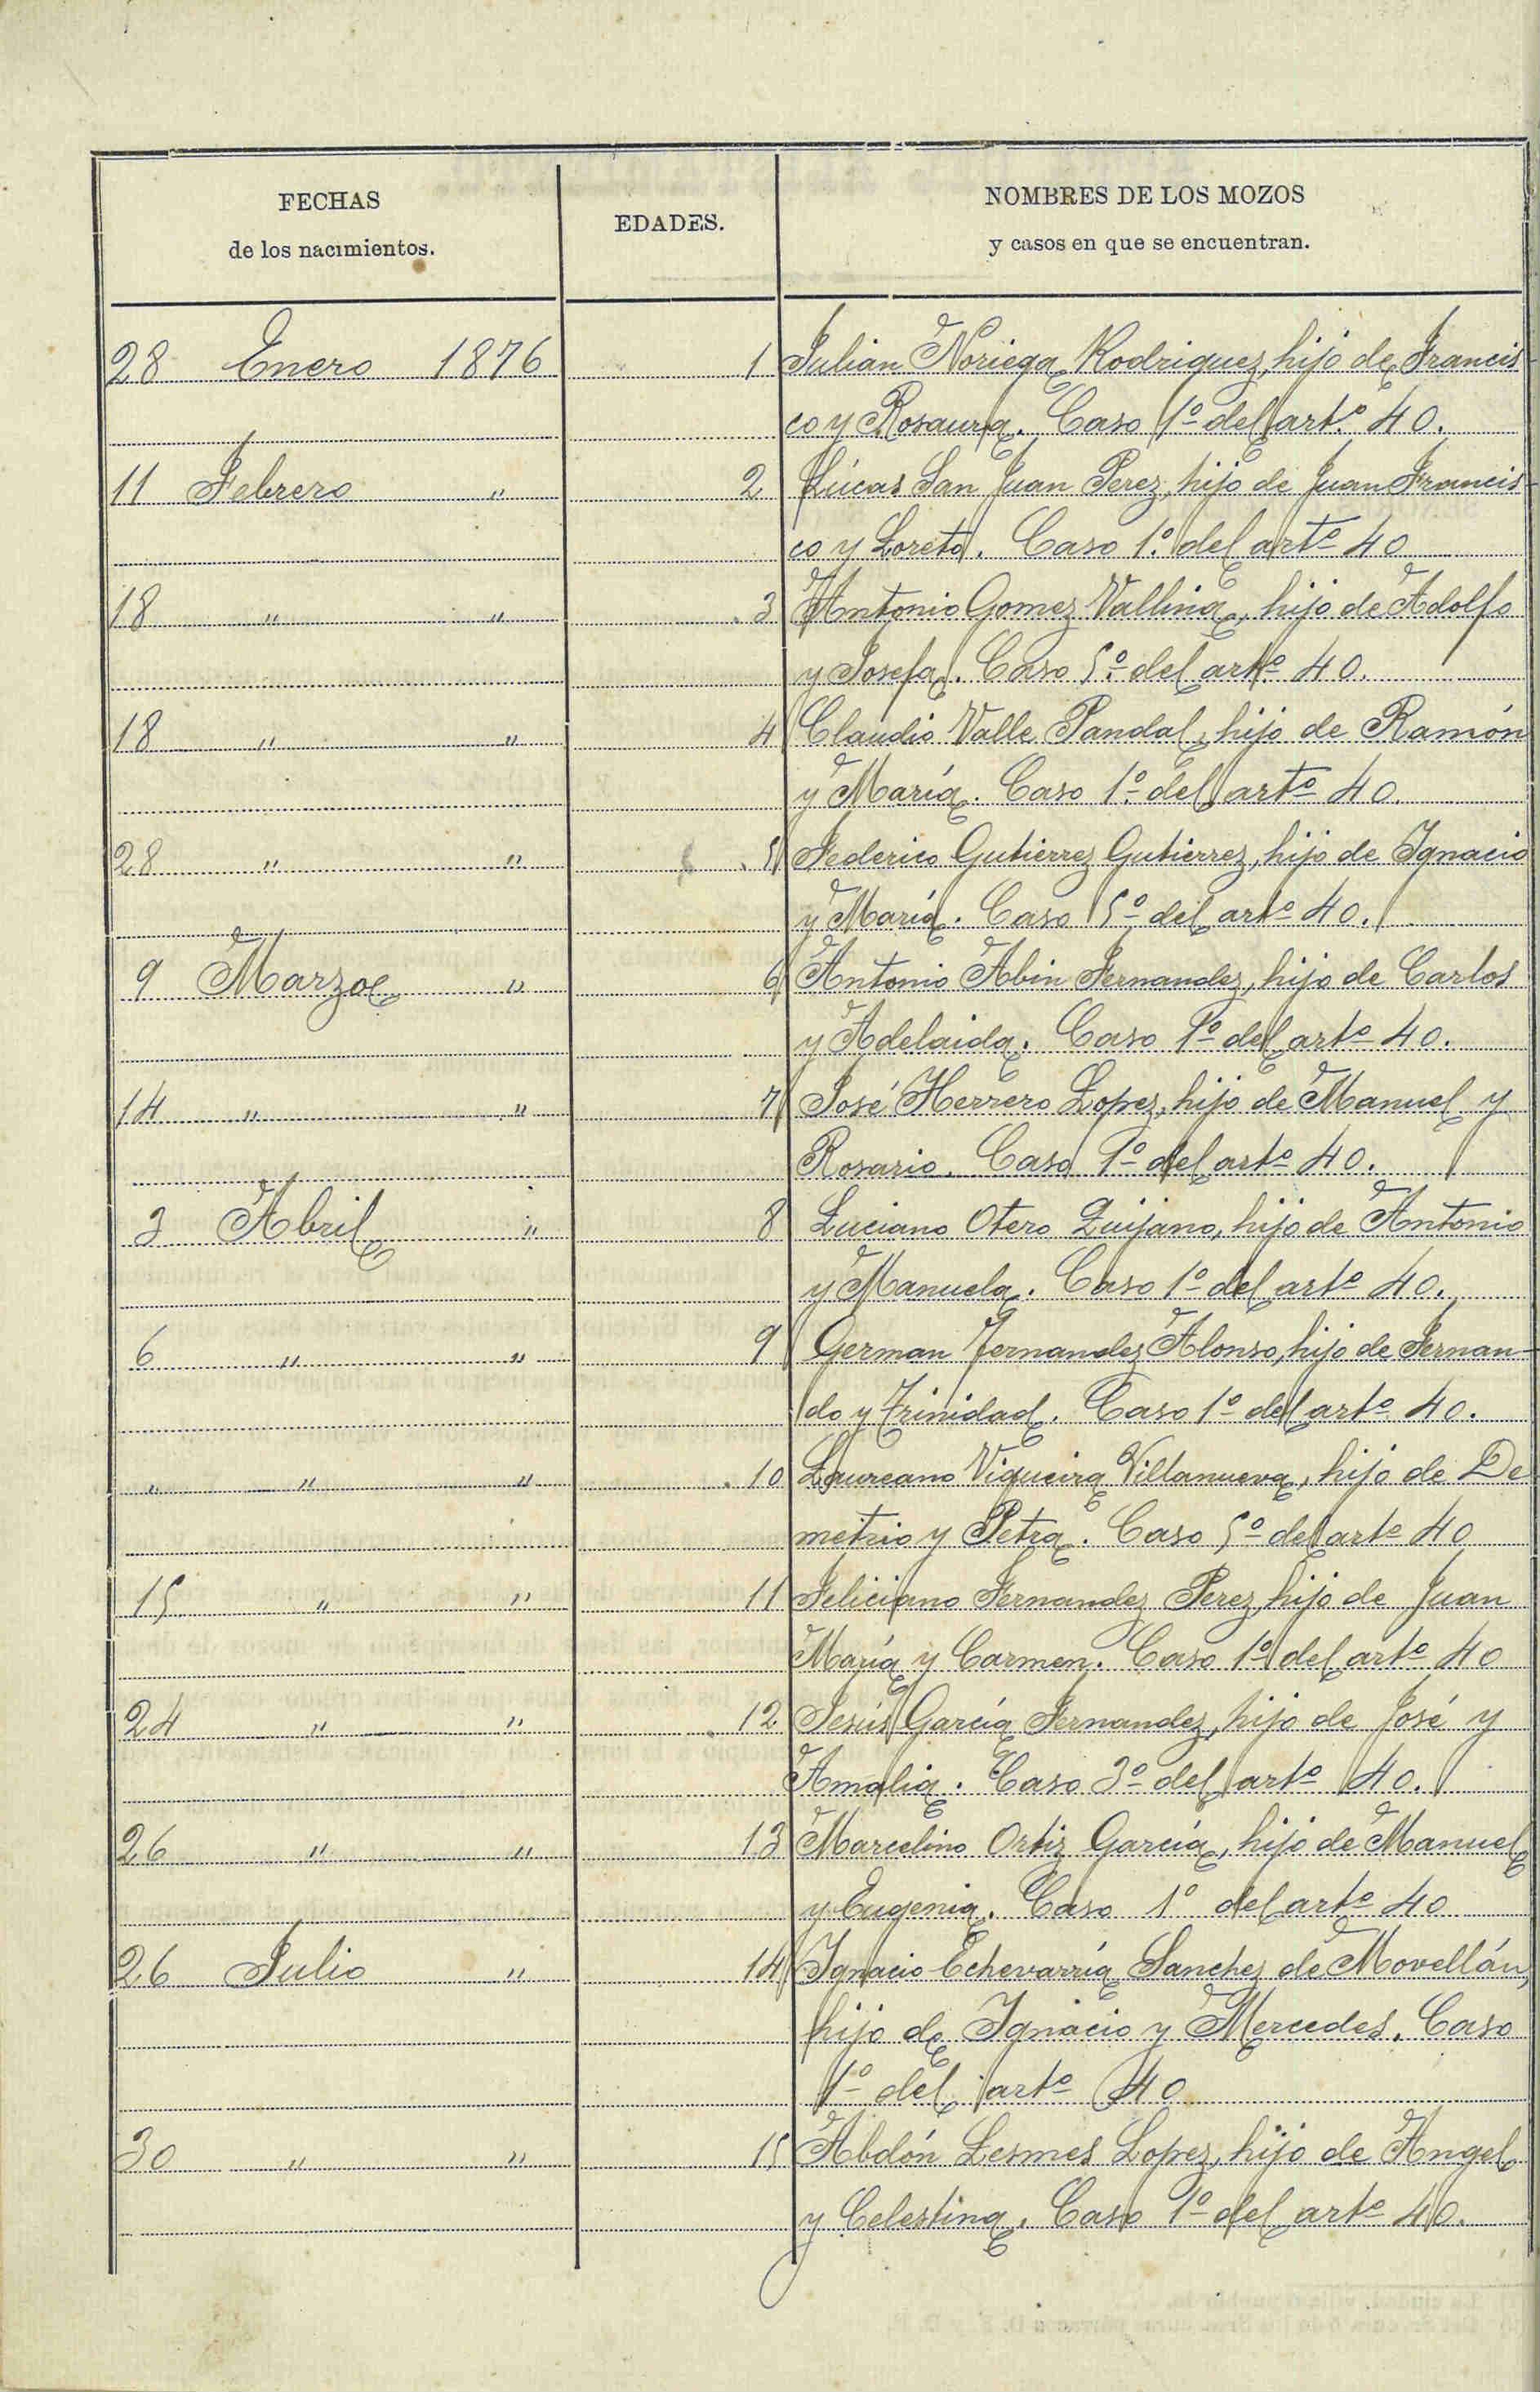 FECHAS
de los nacimientos.
EDADES.
NOMBRES DE LOS MOZOS
y casos en que se encuentran.
28 Enero 1876 1 Julian Noriega Rodriguez, hijo de Francis-
co y Rosaura. Caso 1º del artº 40.
11 Febrero " 2 Lúcas San Juan Perez, hijo de Juan Francis-
co y Loreto. Caso 1º del artº 40
18 " " 3 Antonio Gomez Vallina, hijo de Adolfo
y Josefa. Caso 5º del artº 40.
18 " " 4 Claudio Valle Pandal, hijo de Ramón
y María. Caso 1º del artº 40.
28 " " 5 Federico Gutierrez Gutierrez, hijo de Ignacio
y María. Caso 5º del artº 40.
9 Marzo " 6 Antonio Abin Fernandez, hijo de Carlos
y Adelaida. Caso 1º del artº 40.
14 " " 7 José Herrero Lopez, hijo de Manuel y
Rosario. Caso 1º del artº 40.
3 Abril " 8 Luciano Otero Quijano, hijo de Antonio
y Manuela. Caso 1º del artº 40.
6 " " 9 German Fernandez Alonso, hijo de Fernan-
do y Trinidad. Caso 1º del artº 40.
" " " 10 Laureano Viqueira Villanueva, hijo de De
metrio y Petra. Caso 5º del artº 40
15 " " 11 Feliciano Fernandez Perez, hijo de Juan
María y Carmen. Caso 1º del artº 40
24 " " 12 Jesús García Fernandez, hijo de José y
Amalia. Caso 3º del artº 40.
26 " " 13 Marcelino Ortiz García, hijo de Manuel
y Eugenia. Caso 1º del artº 40
26 Julio " 14 Ignacio Echevarría Sanchez de Movellán,
hijo de Ignacio y Mercedes. Caso
1º del artº 40
30 " " 15 Abdón Lesmes Lopez, hijo de Angel
y Celestina. Caso 1º del artº 40.